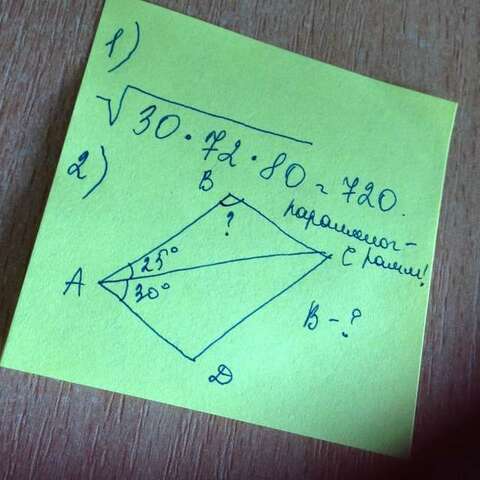 1)
√30·72·80 = 720.
2)
B
параллелог-
C рамм!
?
25°
A
30°
B - ?
D